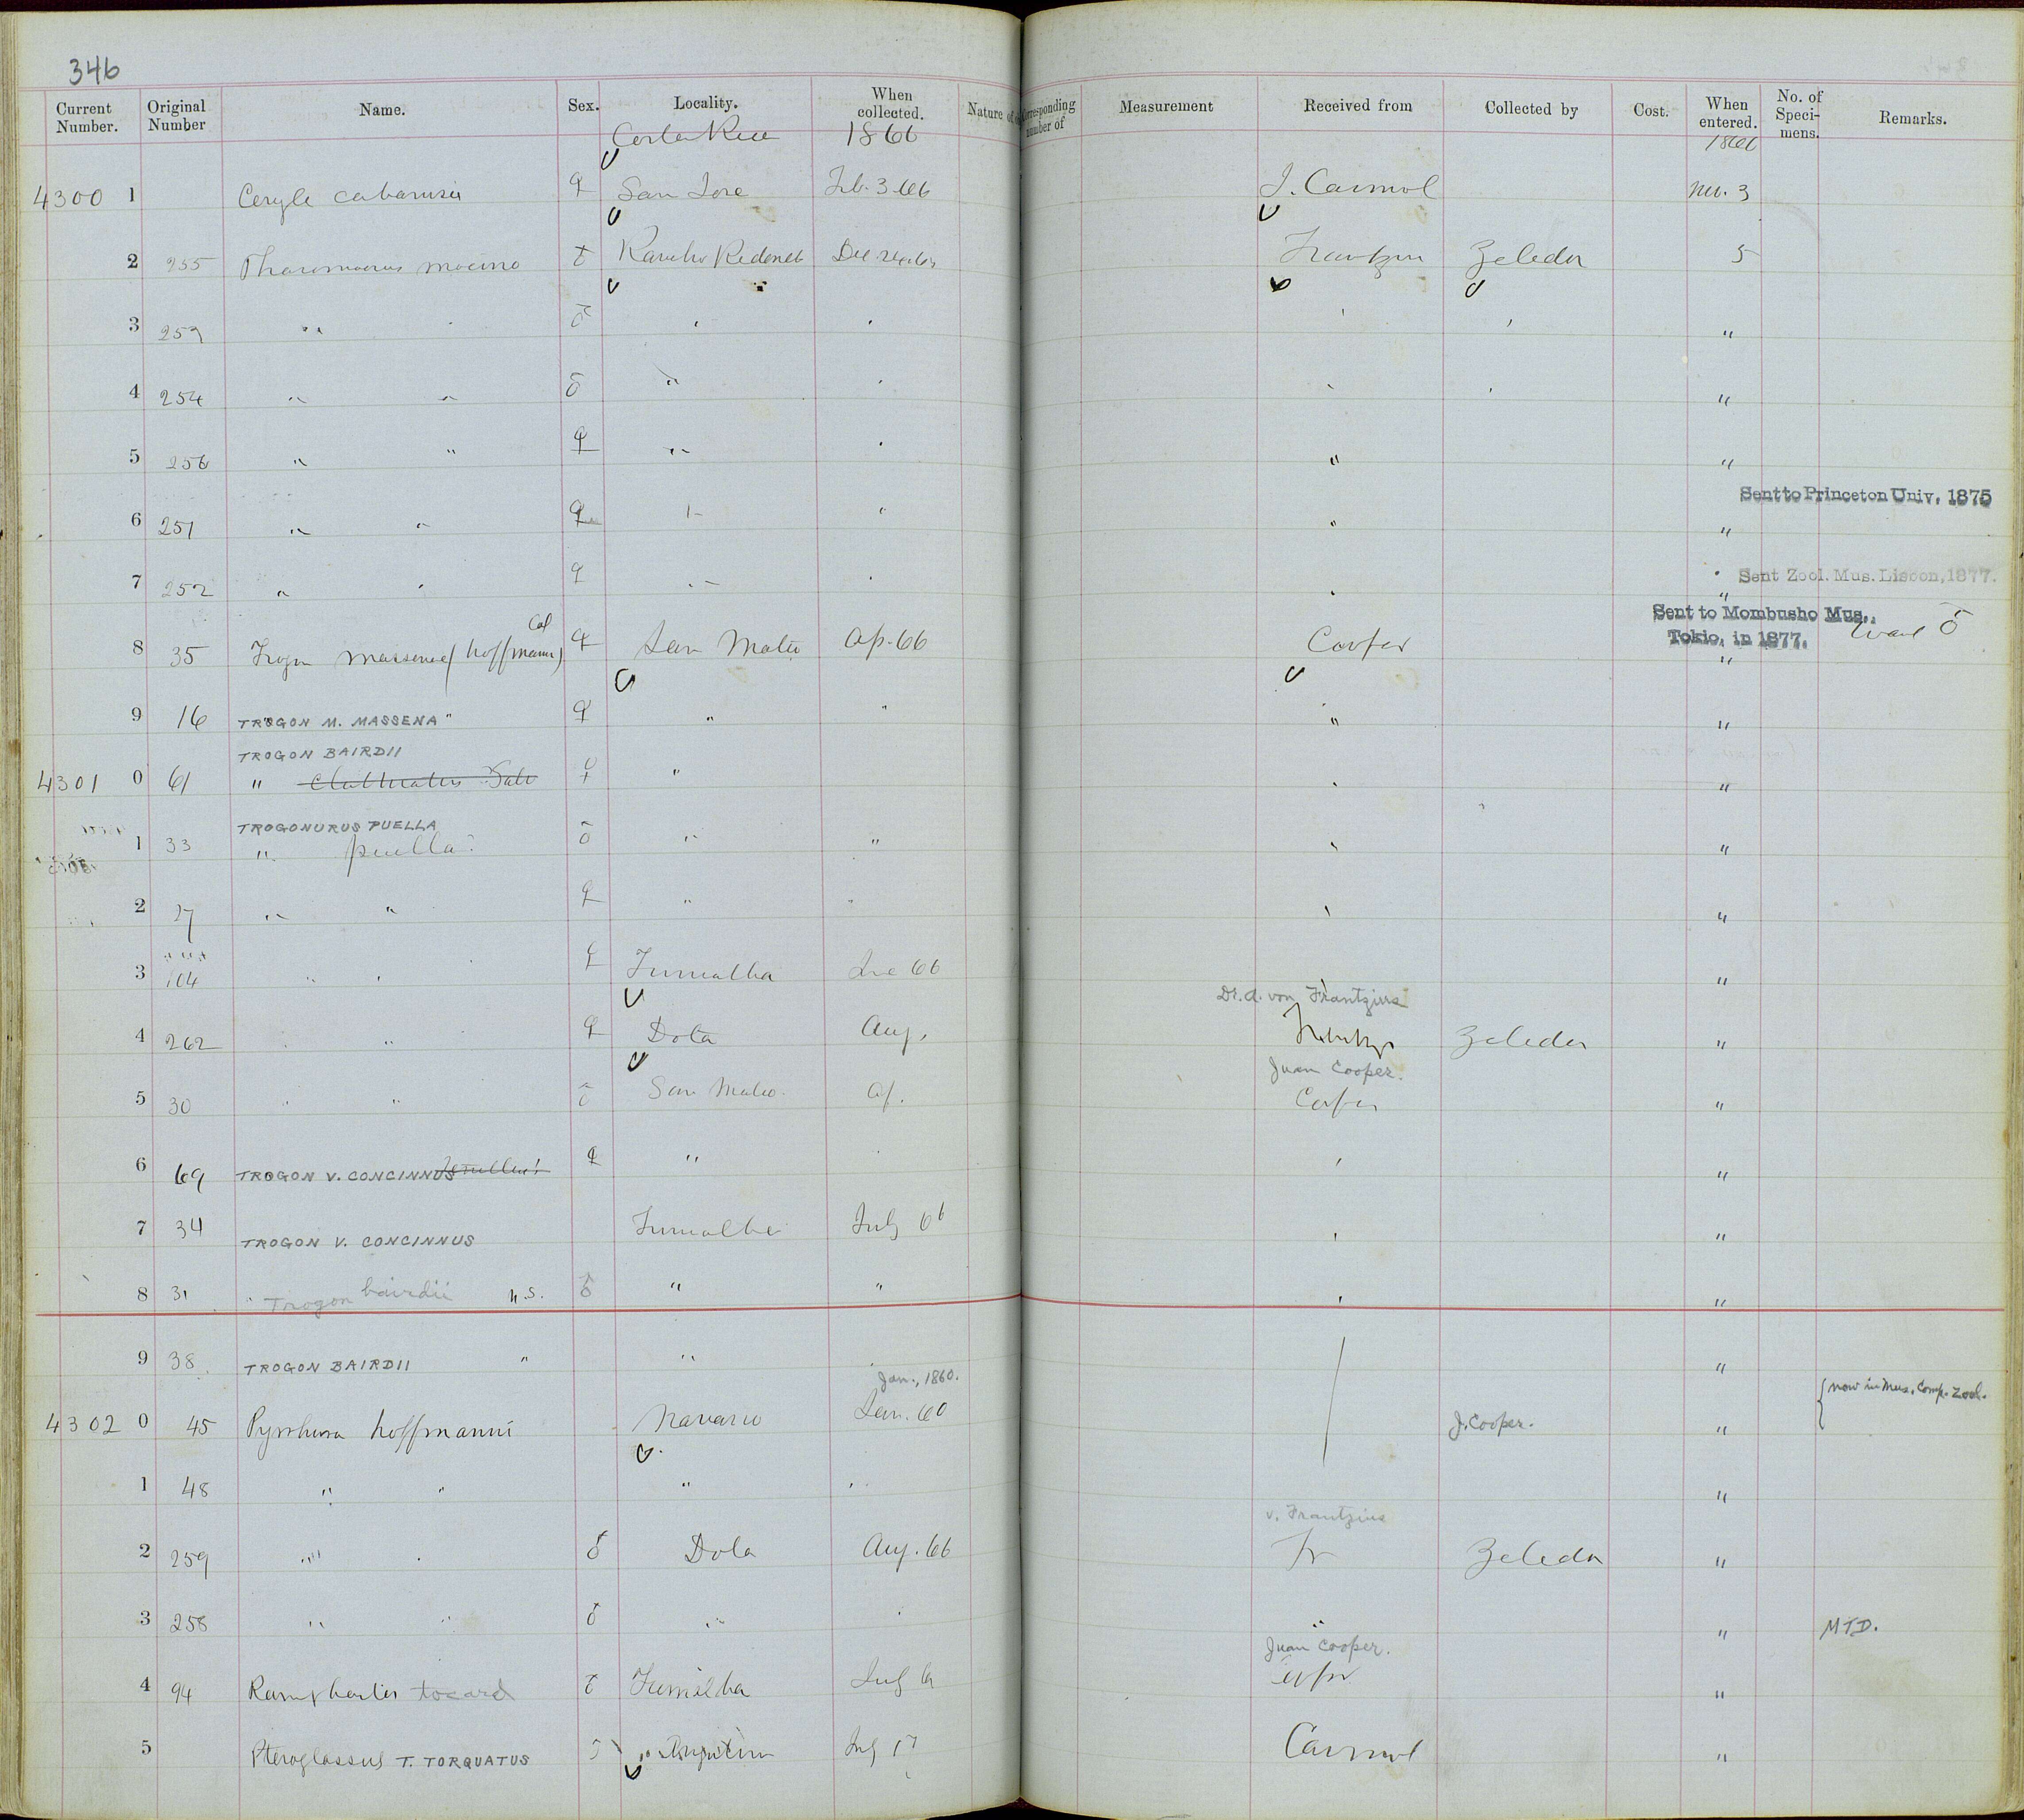 346
Current Number. Original Number Name. Sex. Locality. When collected. Nature of Corresponding number of Measurement Received from Collected by Cost. When entered. No. of Speci-mens. Remarks.
Costa Rica 1866 1866
4300 1 Ceryle cabanisii ♀ San Jose Feb. 3 66 J. Carmiol 3
2 255 Pharomacrus mocino Dec Frantzius Zeledon 5
3 253 " " ♂ " " " " "
4 254 " " ♂ " " " " "
5 256 " " ♀ " " " "
Sent to Princeton Univ, 1875
6 251 " " ♀ " " " "
7 252 " " ♀ " " " Sent Zool. Mus. Lisbon, 1877. "
Cal
8 35 Trogon massena (hoffmann) ♀ San Mateo Ap. 66 Cooper Sent to Mombusho Mus., Tokio, in 1877. " ♂
9 16 TROGON M. MASSENA " ♀ " " " "
TROGON BAIRDII
4301 0 61 " clathratus Salv ♀ " " "
TROGONURUS PUELLA
1 33 " puella ♂ " " " "
2 27 " " ♀ " " " "
3 104 " " ♀ Turrialba 66 " "
Dr. A. von Frantzius
4 262 " " ♀ Dota Aug. Frantzius Zeledon "
Juan Cooper.
5 30 " " ♂ San Mateo. Ap. Cooper "
6 69 TROGON V. CONCINNUS ♀ " " " "
7 34 TROGON V. CONCINNUS Turrialba July 66 " "
8 31 " Trogon bairdii n.s. ♂ " " " "
9 38 TROGON BAIRDII " " " "
Jan., 1860. { now in Mus. Comp. Zool.
4302 0 45 Pyrrhura hoffmanni Navarro Jan. 60 J. Cooper. "
1 48 " " " " "
v. Frantzius
2 259 " " ♂ Dota Aug. 66 Fr Zeledon "
3 258 " " ♂ " " " " MTD.
Juan Cooper.
4 94 Ramphastos tocard ♂ Turrialba July Cooper "
5 Pteroglossus T. TORQUATUS Angostura July Carmiol "